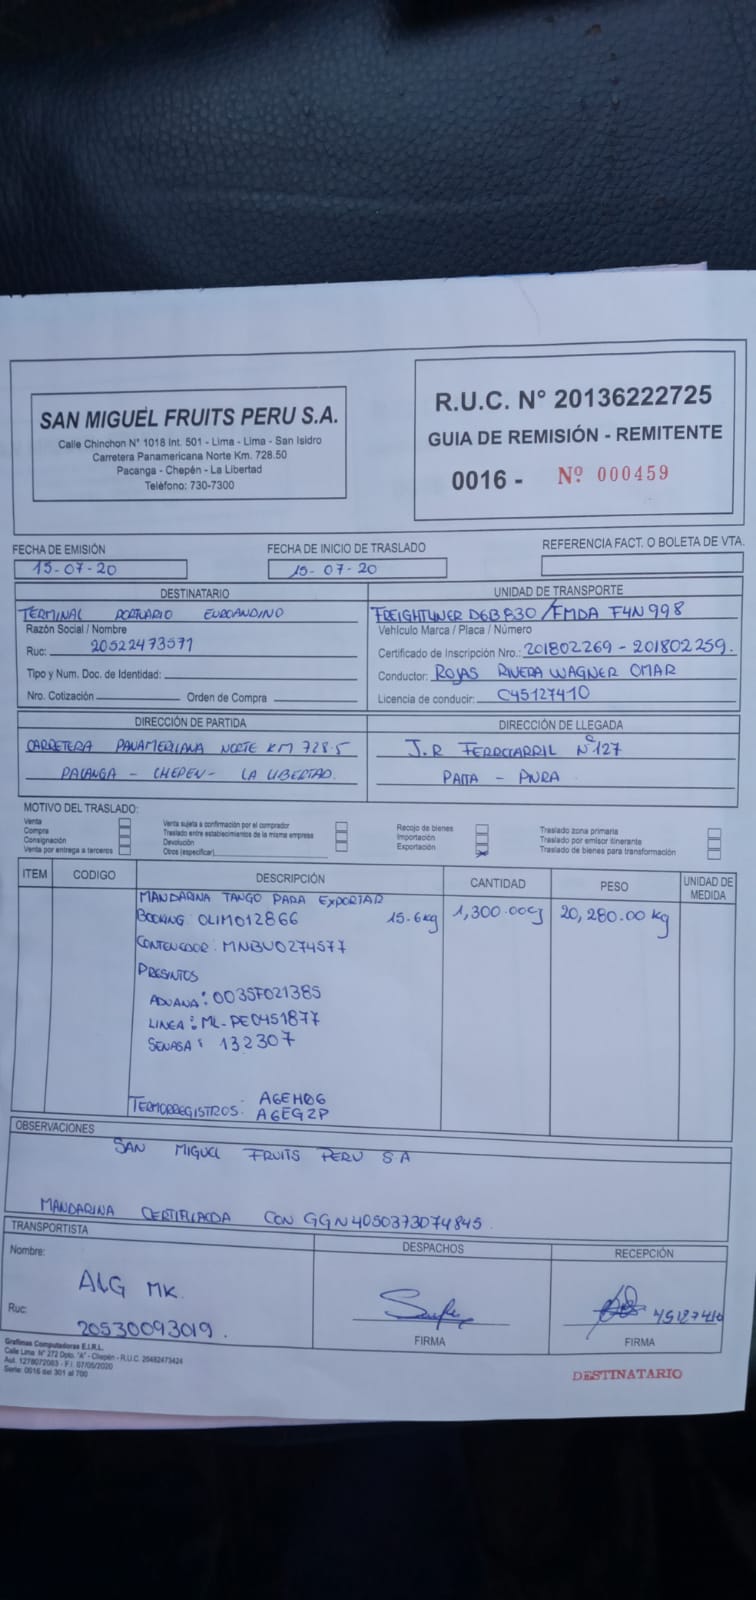 SAN MIGUEL FRUITS PERU S.A.
Calle Chinchon N° 1018 Int. 501 - Lima - Lima - San Isidro
Carretera Panamericana Norte Km. 728.50
Pacanga - Chepén - La Libertad
Teléfono: 730-7300
R.U.C. N° 20136222725
GUIA DE REMISIÓN - REMITENTE
0016 - Nº 000459
FECHA DE EMISIÓN
15-07-20
FECHA DE INICIO DE TRASLADO
15-07-20
REFERENCIA FACT. O BOLETA DE VTA.
DESTINATARIO
TERMINAL PORTUARIO EUROANDINO
Razón Social / Nombre
Ruc: 20522473571
Tipo y Num. Doc. de Identidad:
Nro. Cotización Orden de Compra
UNIDAD DE TRANSPORTE
FREIGHTLINER D6B830/FMDA F4N998
Vehículo Marca / Placa / Número
Certificado de Inscripción Nro.: 201802269 - 201802259.
Conductor: ROJAS RIVERA WAGNER OMAR
Licencia de conducir: C45127410
DIRECCIÓN DE PARTIDA
CARRETERA PANAMERICANA NORTE KM 728.5
PACANGA - CHEPEN - LA LIBERTAD.
DIRECCIÓN DE LLEGADA
J.R FERROCARRIL Nº127
PAITA - PIURA
MOTIVO DEL TRASLADO:
Venta
Compra
Consignación
Venta por entrega a terceros
Venta sujeta a confirmación por el comprador
Traslado entre establecimientos de la misma empresa
Devolución
Otros (especificar)
Recojo de bienes
Importación
Exportación
Traslado zona primaria
Traslado por emisor itinerante
Traslado de bienes para transformación
ITEM CODIGO DESCRIPCIÓN CANTIDAD PESO UNIDAD DE MEDIDA
MANDARINA TANGO PARA EXPORTAR
BOOKING: OLIM012866 15.6kg 1,300.00cj 20,280.00 kg
CONTENEDOR: MNBU0274577
PRESINTOS
ADUANA: 0035F021385
LINEA: ML-PE0451877
SENASA: 132307
TERMORREGISTROS: A6EH06
A6EG2P
OBSERVACIONES
SAN MIGUEL FRUITS PERU S A
MANDARINA CERTIFICADA CON GGN4050373074845.
TRANSPORTISTA
Nombre:
ALG MK.
Ruc:
20530093019.
DESPACHOS
FIRMA
RECEPCIÓN
45127410
FIRMA
Grafimas Computadoras E.I.R.L.
Calle Lima N° 272 Dpto. "A" - Chepén - R.U.C. 20482473424
Aut. 1278072083 - F.I. 07/05/2020
Serie: 0016 del 301 al 700
DESTINATARIO